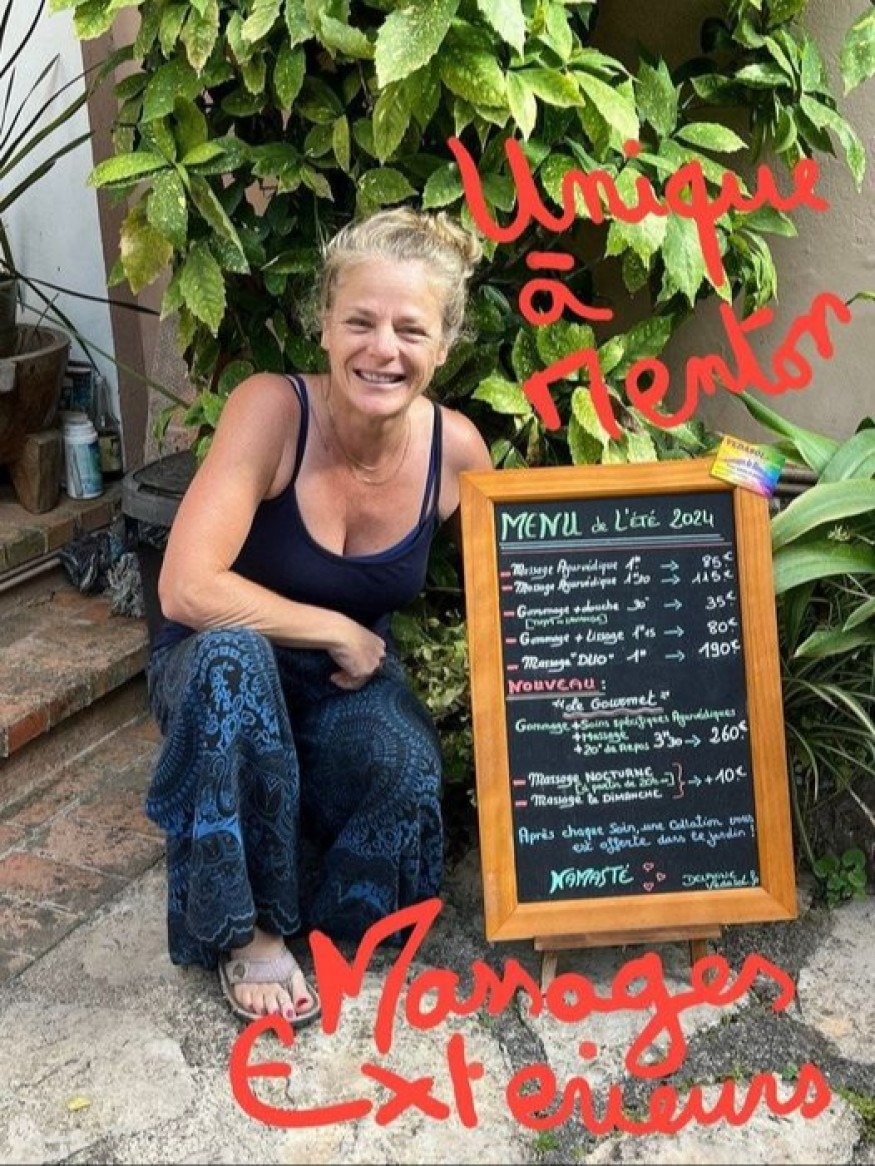 Unique
à
Menton
VEDASOL
MENU de L'ÉTÉ 2024
Massage Ayurvédique 1H → 85€
Massage Ayurvédique 1H30 → 115€
Gommage + douche 30' → 35€
Gommage + Lissage 1H15 → 80€
Massage "DUO" 1H → 190€
NOUVEAU :
"Le Gourmet"
Gommage + Soins spécifiques Ayurvédiques
+ Massage
+ 20' de Repos 3H30 → 260€
Massage NOCTURNE
[à partir de 20H] → +10€
Massage le DIMANCHE
Après chaque Soin, une Collation vous
est offerte dans le jardin !
NAMASTÉ DELPHINE
Vedasol.fr
Massages
Exterieurs